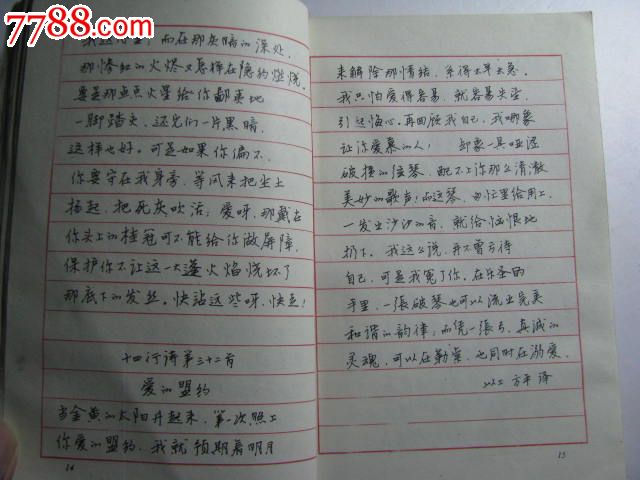 7788.com
中国收藏热线
而在那灰暗的深处,
那惨红的火烬又怎样在隐约燃烧。
要是那点点火星给你鄙夷地
一脚踏灭,还它们一片黑暗,
这样也好,可是如果你偏不
你要守在我身旁,等风来把尘土
扬起,把死灰吹活,爱呀,那戴在
你头上的桂冠可不能给你做屏障,
保护你不让这一大蓬火焰烧坏了
那底下的发丝。快站远些呀,快走!
十四行诗第三十二首
爱的盟约
当金黄的太阳升起来,第一次照上
你爱的盟约,我就预期着明月
14
来解除那情结,系得太早太急。
我只怕爱得容易,就容易失望,
引起悔心。再回顾我自己,我哪象
让你爱慕的人!却象一具哑涩
破损的弦琴,配不上你那么清澈
美妙的歌声!而这琴,匆忙里给用上,
一发出沙沙的音,就给恼恨地
扔下。我这么说,并不曾亏待
自己,可是我冤了你。在乐圣的
手里,一张破琴也可以流出完美
和谐的韵律;而凭一张弓,真诚的
灵魂,可以在勒索,也同时在溺爱。
以上 方平 译
15